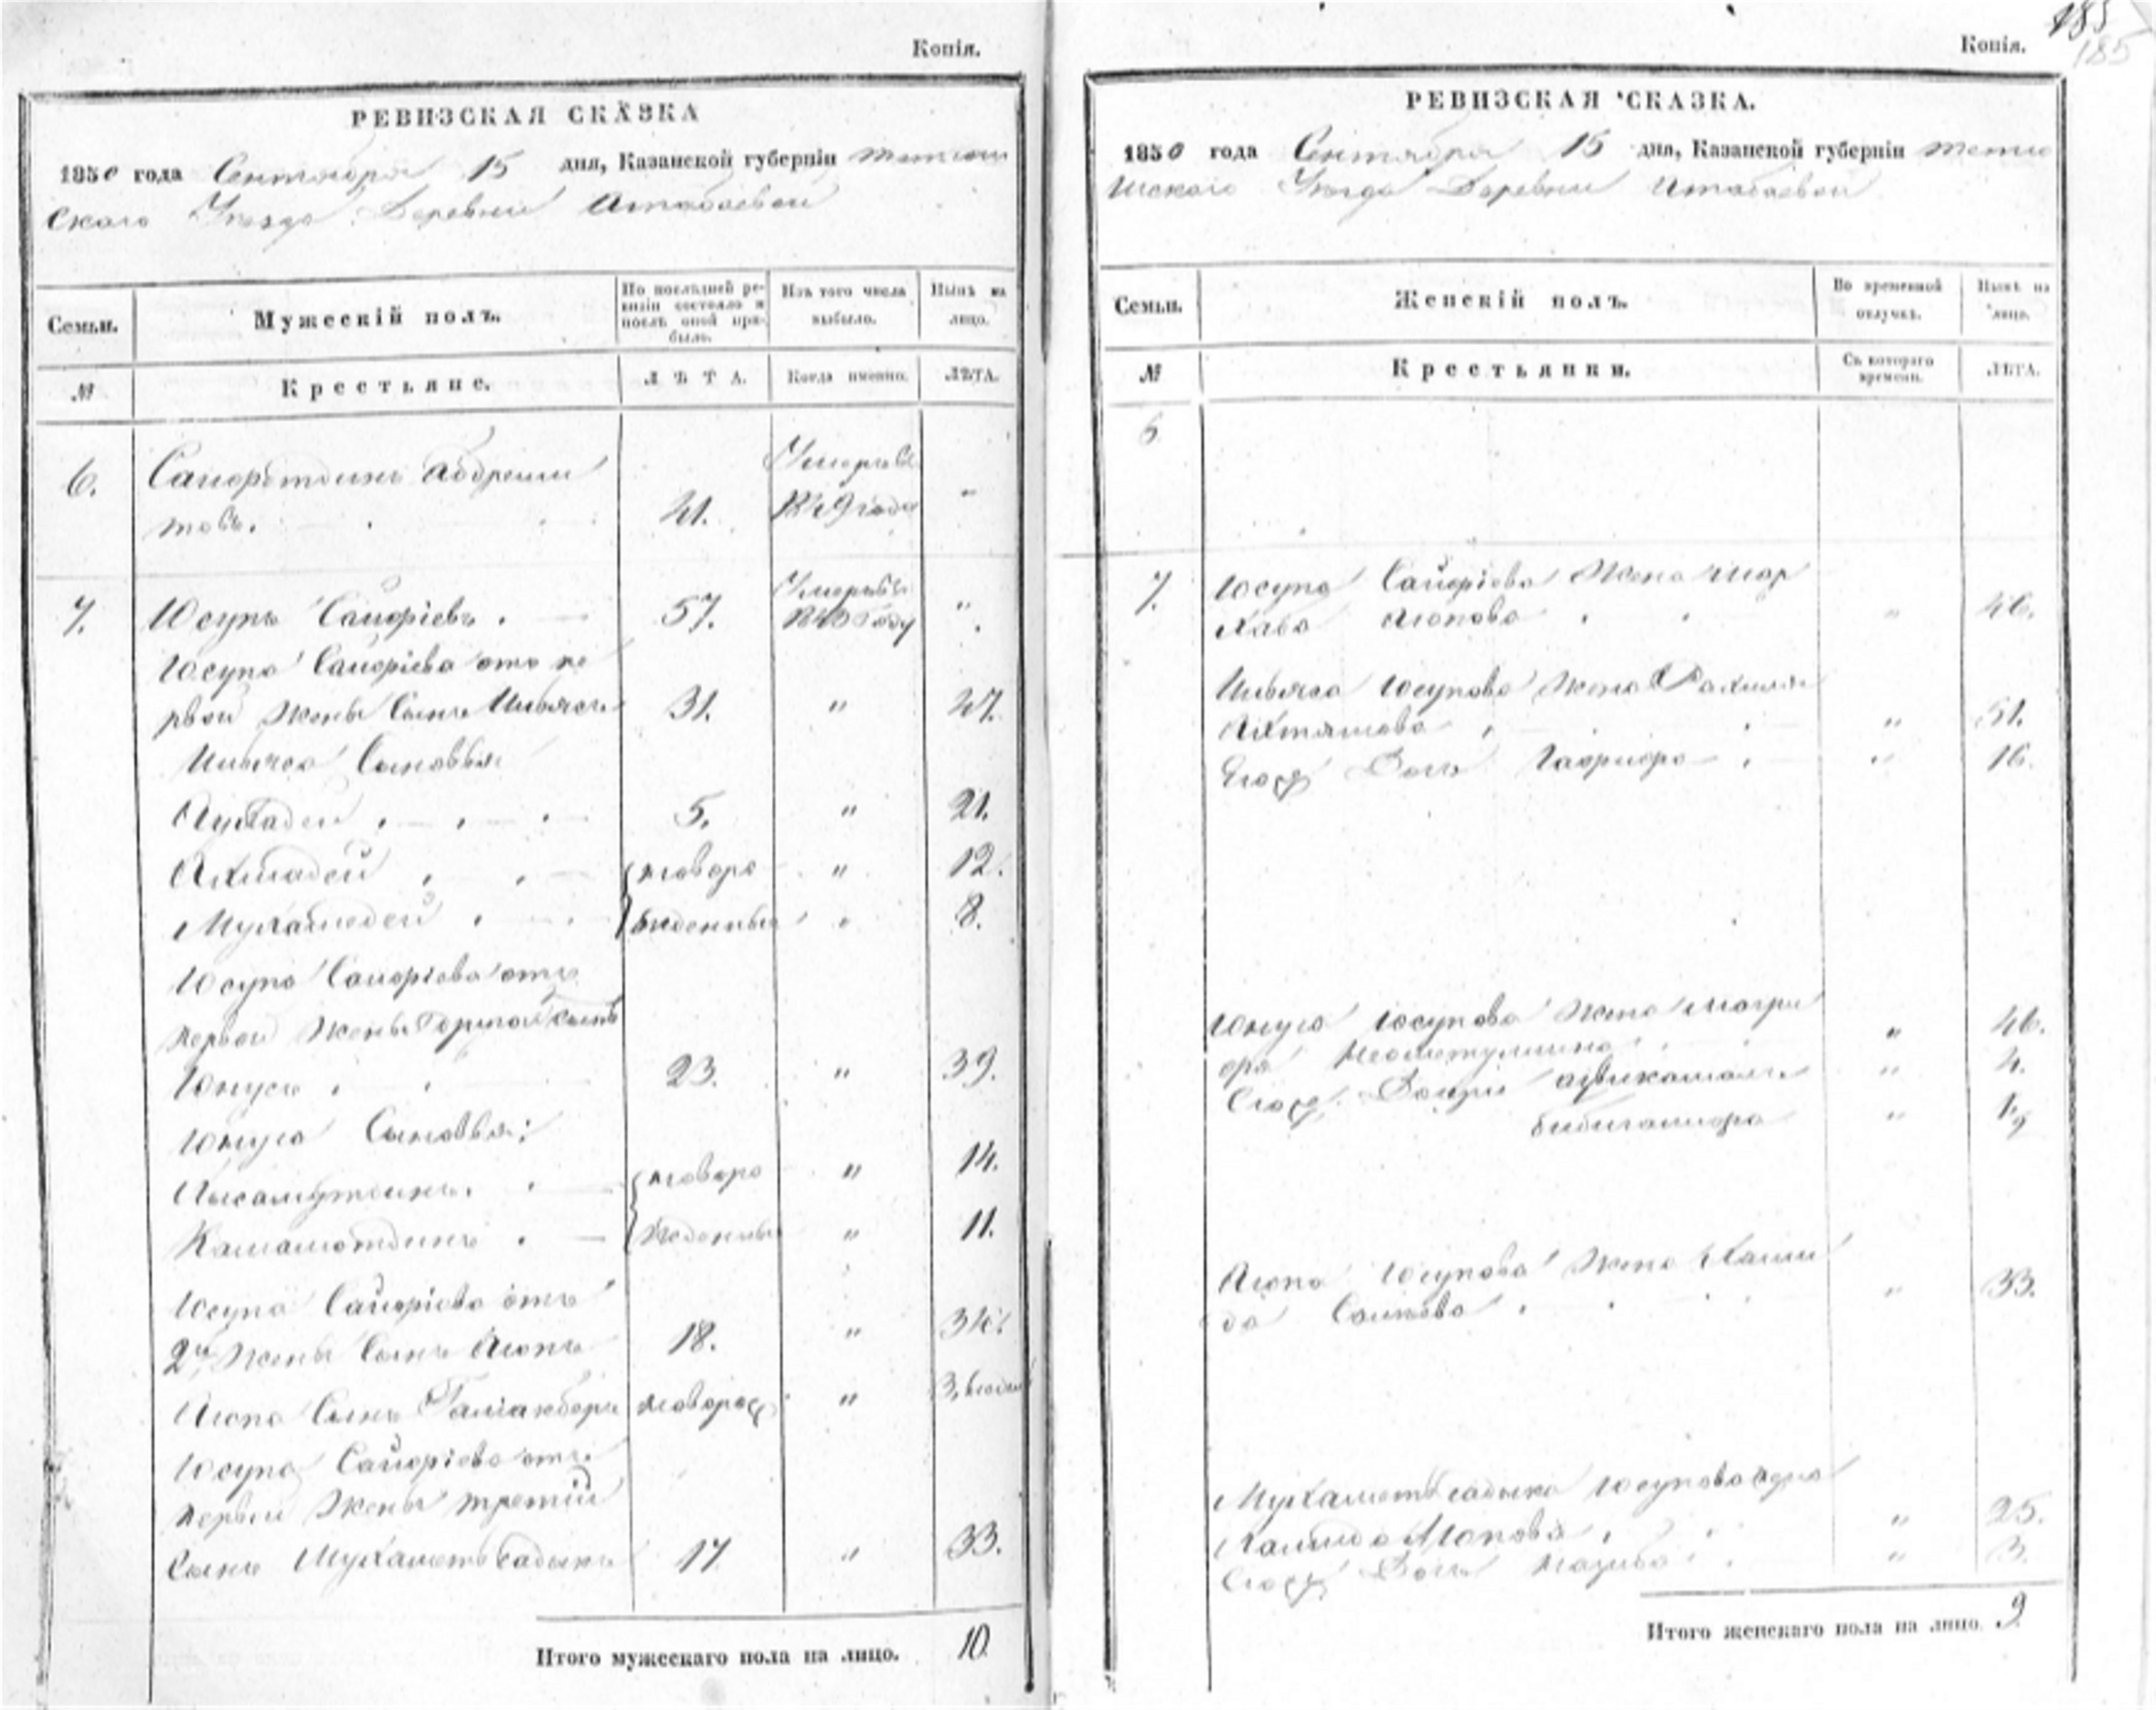 Копія.
РЕВИЗСКАЯ СКАЗКА
1850 года Сентября 15 дня, Казанской губерніи Тетюш
скаго Уезда Деревни Атабаевой
Семьи.
Мужескій полъ.
По последней ре-
визіи состояло и
послѣ оной при-
было.
Изъ того числа
выбыло.
Нынѣ на
лицо.
№
Крестьяне.
ЛѢТА.
Когда именно.
ЛѢТА.
6. Сайфетдинъ Абдреши
товъ. 41. Умеръ въ 1849 года "
7. Юсупъ Сайфіевъ. 57. Умеръ въ году "
Юсупа Сайфіева отъ пе
рвой Жены Сынъ Ильясъ 31. " 47.
Ильяса Сыновья
5. " 21.
Ахмадей новоро " 12.
Мухамедей жденныи " 8.
Юсупа Сайфіева отъ
первой Жены другой сынъ
Юнусъ 23. " 39.
Юнуса Сыновья:
новоро " 14.
Камалетдинъ жденныи " 11.
Юсупа Сайфіева отъ
2й Жены Сынъ Аюпъ 18. " 34.
Аюпа Сынъ Галіакберъ новорож " 3, недели
Юсупа Сайфіева отъ
первой Жены третій
Сынъ Мухаметьсадыкъ 17 " 33.
Итого мужескаго пола на лицо. 10.
185
185
Копія.
РЕВИЗСКАЯ СКАЗКА.
1850 года Сентября 15 дня, Казанской губерніи Тетю
шскаго Уезда Деревни Атабаевой
Семьи.
Женскій полъ.
Во временной
отлучкѣ.
Нынѣ на
лицо.
№
Крестьянки.
Съ котораго
времени.
ЛѢТА.
6
7. Юсупа Сайфіева Жена Шар
Аюпова " 46.
Ильяса Юсупова Жена
Ахтямова " 51.
Егож Дочь " 16.
Юнуса Юсупова Жена Магри
фа " 46.
Егож Дочери " 4.
"
Аюпа Юсупова Жена Хами
да " 33.
Мухаметьсадыка Юсупова жена
Аюпова " 25.
Егож Дочь " 3.
Итого женскаго пола на лицо. 9